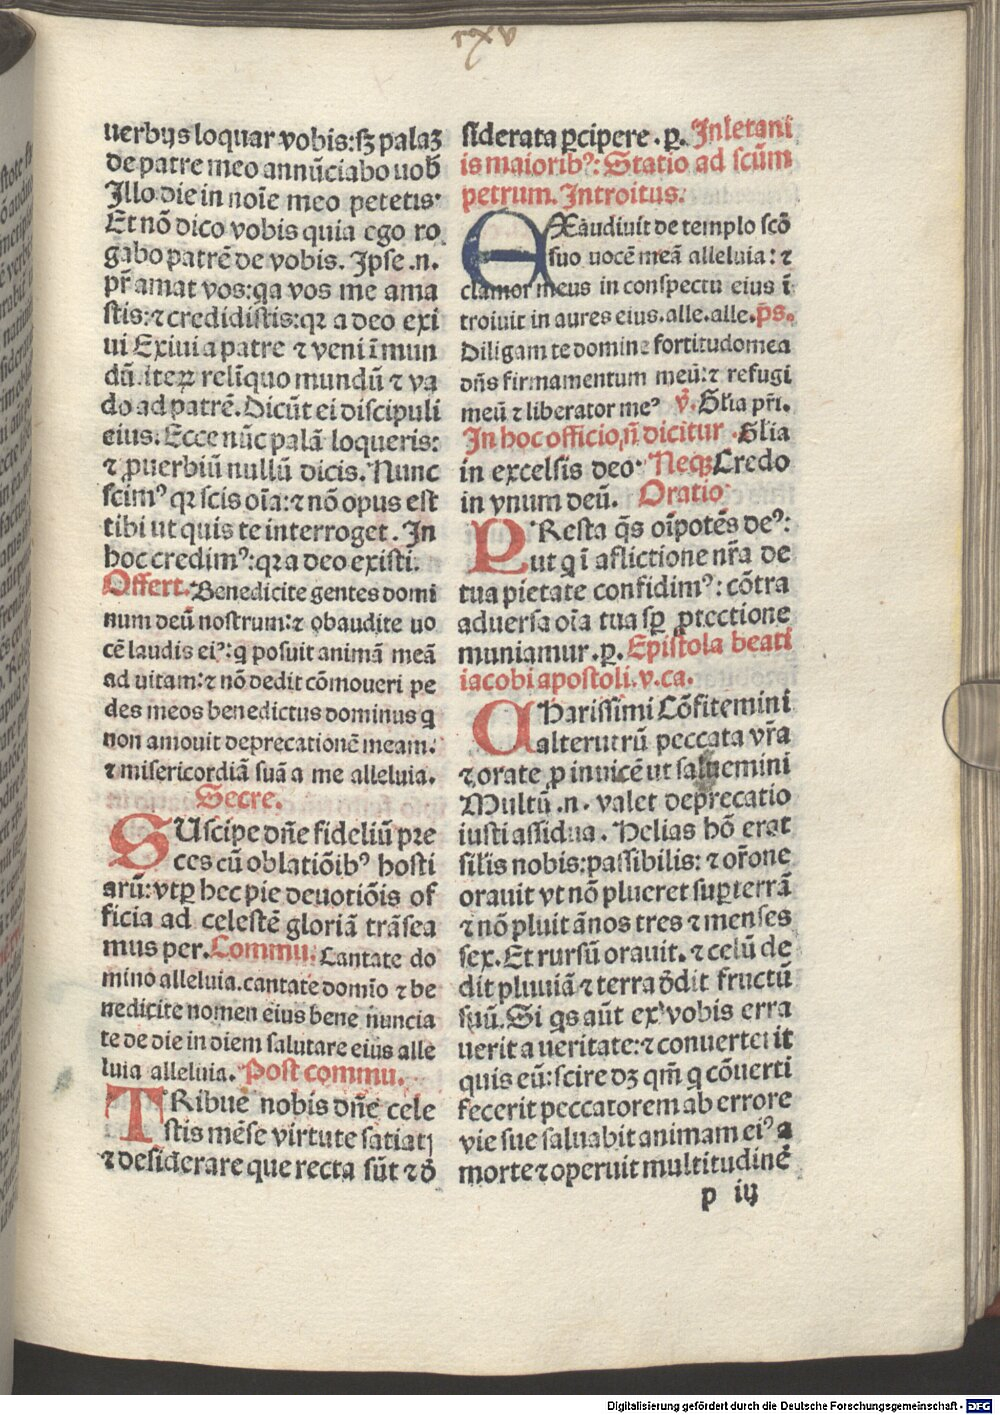 cxv
uerbijs loquar vobis: sꝫ palaꝫ
de patre meo annūciabo uob̄
Illo die in noīe meo petetis·
Et nō dico vobis quia ego ro
gabo patrē de vobis. Ipse .n.
pr̄ amat vos: qa vos me ama
stis: ⁊ credidistis: qꝛ a deo exi
ui Exiui a patre ⁊ veni ī mun
dū. iteꝝ relīquo mundū ⁊ va
do ad patrē. Dicūt ei discipuli
eius. Ecce nūc palā loqueris:
⁊ ꝓuerbiū nullū dicis. Nunc
scimꝰ qꝛ scis oīa: ⁊ nō opus est
tibi ut quis te interroget. In
hoc credimꝰ: qꝛ a deo existi.
Offert. Benedicite gentes domi
num deū nostrum: ⁊ obaudite uo
cē laudis eiꝰ: q posuit animā meā
ad uitam: ⁊ nō dedit cōmoueri pe
des meos benedictus dominus q
non amouit deprecationē meam:
⁊ misericordiā suā a me alleluia.
Secre.
SUscipe dn̄e fideliū pre
ces cū oblatiōibꝰ hosti
arū: vtꝑ hec pie deuotiōis of
ficia ad celestē gloriā trāsea
mus per. Commu. Cantate do
mino alleluia. cantate domīo ⁊ be
nedicite nomen eius bene nuncia
te de die in diem salutare eius alle
luia alleluia. Post commu.
TRibue nobis dn̄e cele
stis mēse virtute satiatj
⁊ desiderare que recta sūt ⁊ d̄
siderata ꝑcipere. ꝑ. In letani
is maioribꝰ: Statio ad scūm
petrum. Introitus.
EXaudiuit de templo scō
suo uocē meā alleluia: ⁊
clamor meus in conspectu eius ī
troiuit in aures eius. alle. alle. p̄s.
Diligam te domine fortitudo mea
dn̄s firmamentum meū: ⁊ refugi
meū ⁊ liberator meꝰ v̄. Gl̄ia pr̄i.
In hoc officio, n̄ dicitur. Gl̄ia
in excelsis deo· Neqꝫ Credo
in vnum deū. Oratio
PResta q̄s oīpotēs deꝰ:
ut q ī aflictione nr̄a de
tua pietate confidimꝰ: cōtra
aduersa oīa tua sꝑ ꝓtectione
muniamur. ꝑ. Epistola beati
iacobi apostoli. v. ca.
CHarissimi Cōfitemini
alterutrū peccata vr̄a
⁊ orate ꝓ inuicē ut saluemini
Multū .n. valet deprecatio
iusti assidua. Helias hō erat
silis nobis: passibilis: ⁊ or̄one
orauit vt nō plueret suꝑ terrā
⁊ nō pluit ānos tres ⁊ menses
sex. Et rursū orauit. ⁊ celū de
dit pluuiā ⁊ terra d̄dit fructū
suū. Si q̄s aūt ex vobis erra
uerit a ueritate: ⁊ conuerterit
quis eū: scire dꝫ qm̄ q cōuerti
fecerit peccatorem ab errore
vie sue saluabit animam eiꝰ a
morte ⁊ operuit multitudinē
p iij
Digitalisierung gefördert durch die Deutsche Forschungsgemeinschaft - DFG